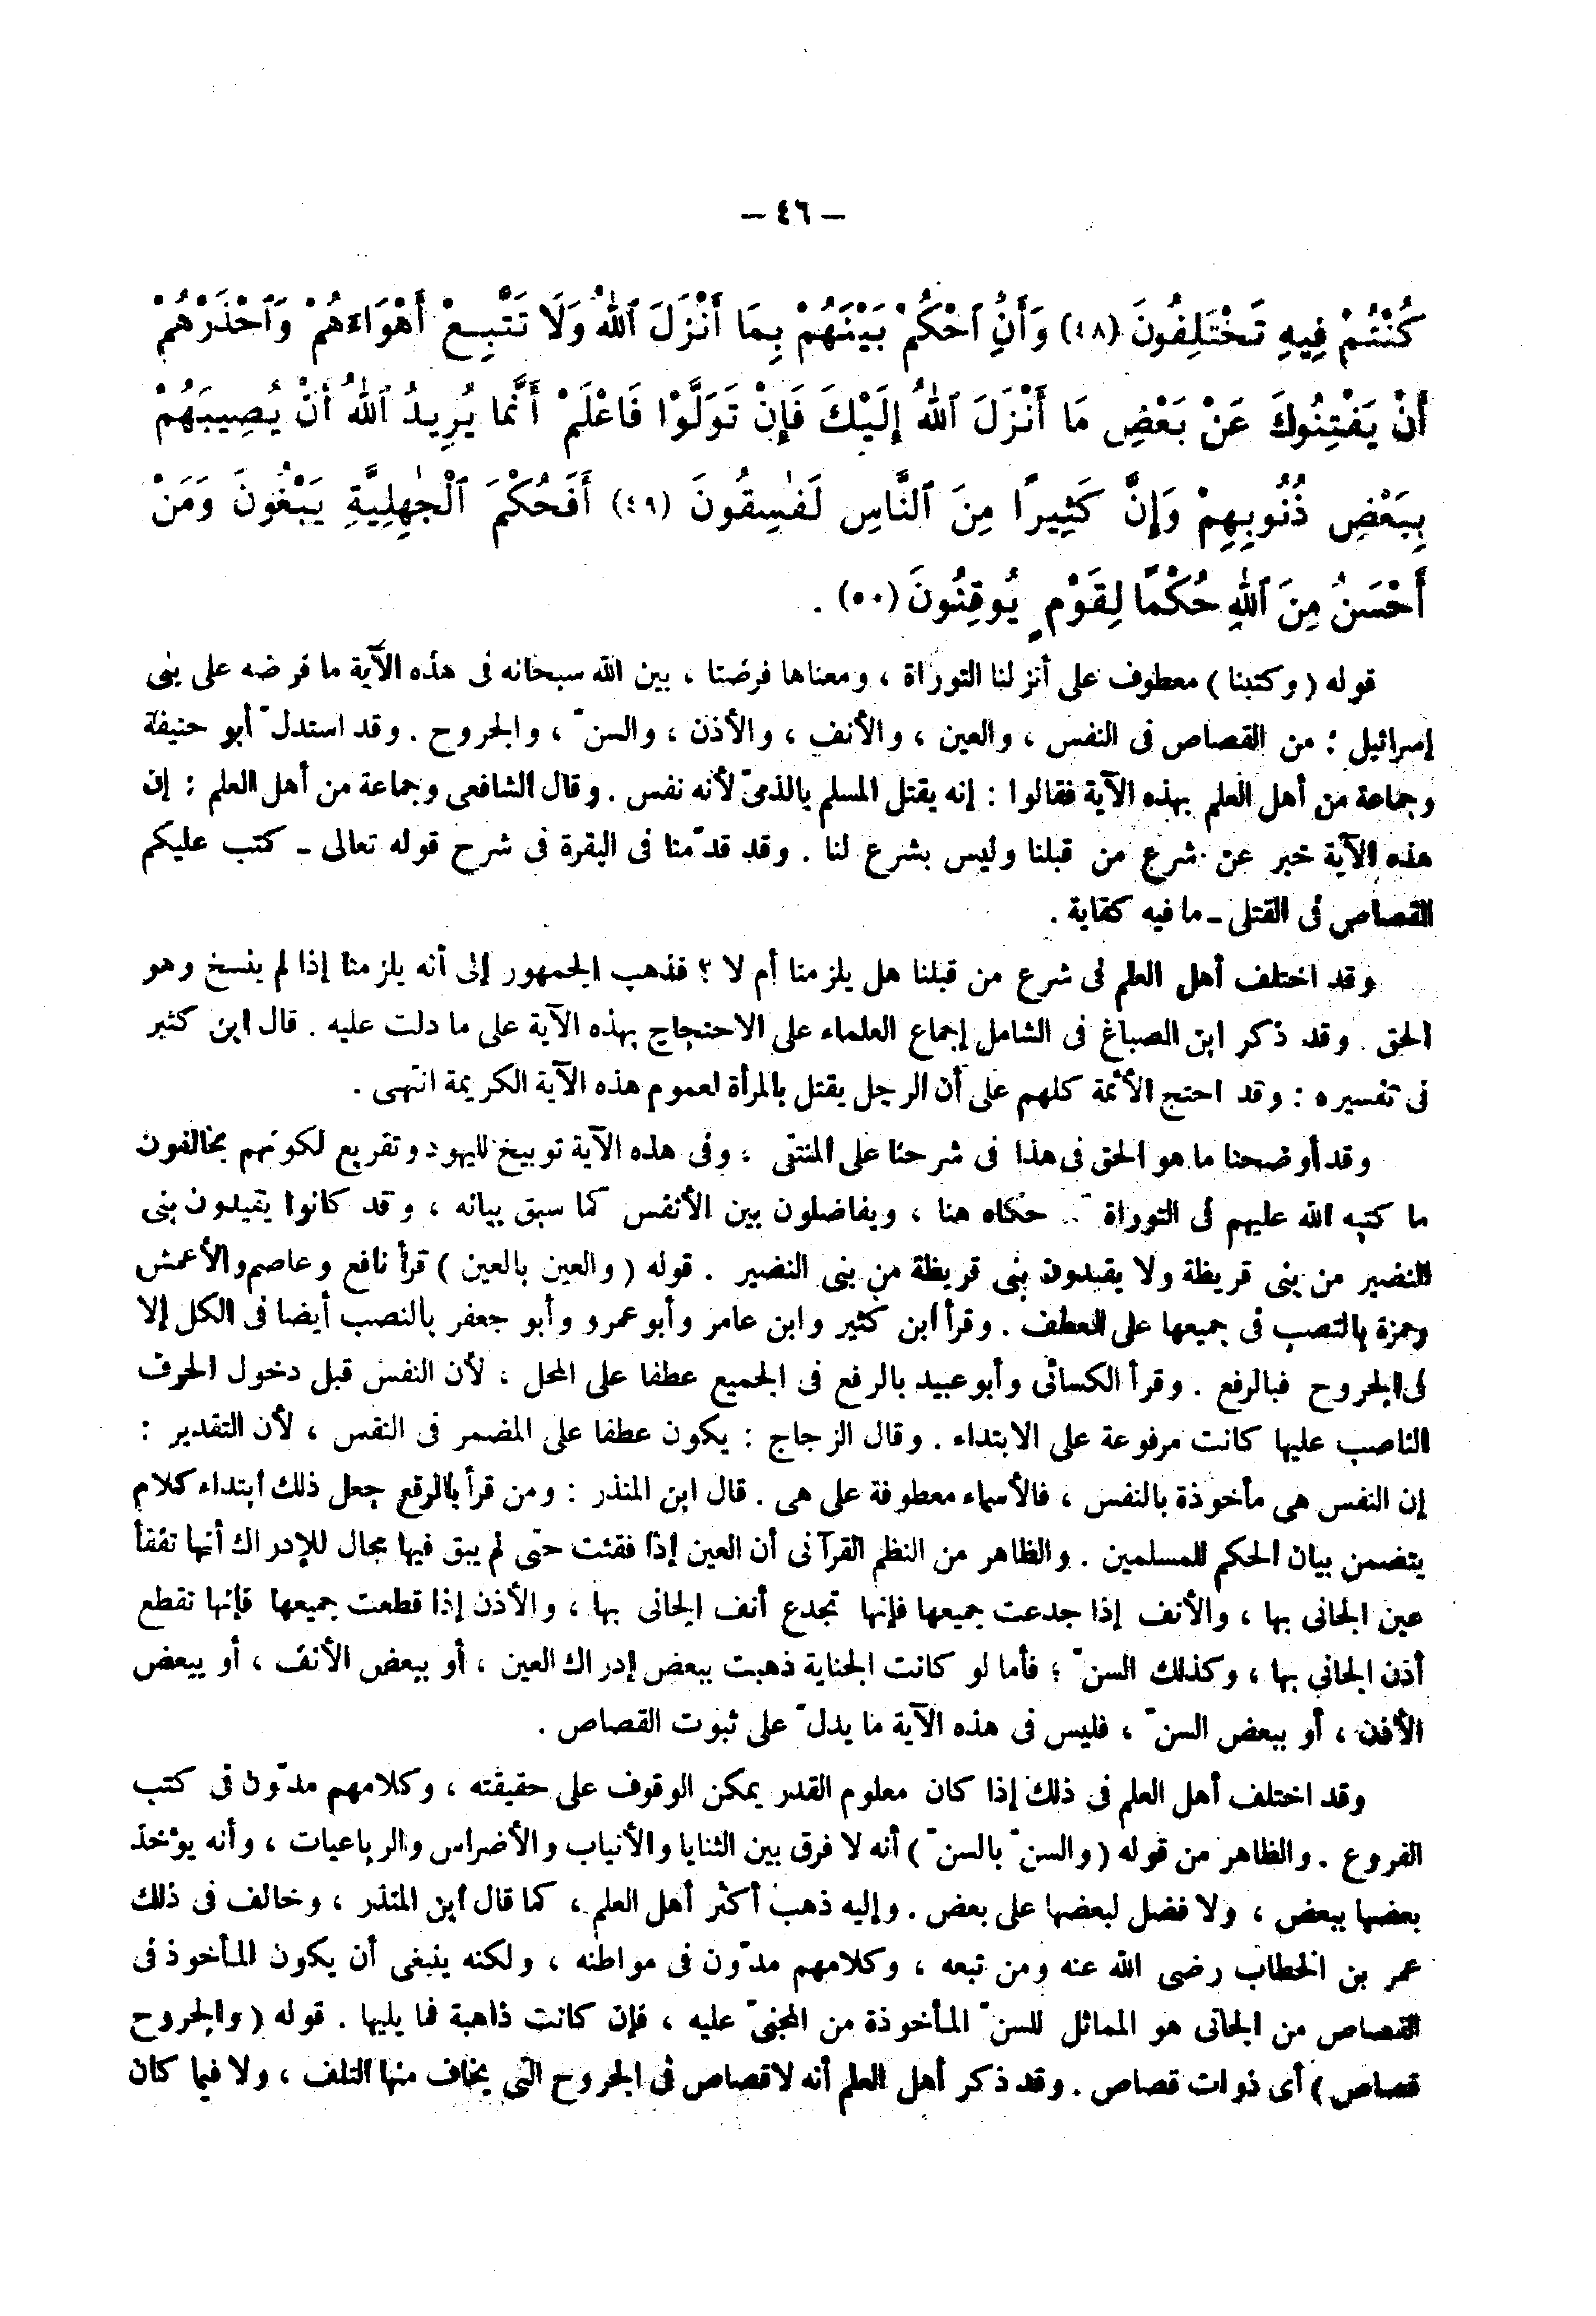 — ٤٦ —
كُنْتُمْ فِيهِ تَخْتَلِفُونَ (٤٨) وَأَنِ ٱحْكُمْ بَيْنَهُمْ بِمَا أَنْزَلَ ٱللهُ وَلَا تَتَّبِعْ أَهْوَاءَهُمْ وَٱحْذَرْهُمْ
أَنْ يَفْتِنُوكَ عَنْ بَعْضِ مَا أَنْزَلَ ٱللهُ إِلَيْكَ فَإِنْ تَوَلَّوْا فَاعْلَمْ أَنَّما يُرِيدُ ٱللهُ أَنْ يُصِيبَهُمْ
بِبَعْضِ ذُنُوبِهِمْ وَإِنَّ كَثِيرًا مِنَ ٱلنَّاسِ لَفٰسِقُونَ (٤٩) أَفَحُكْمَ ٱلْجٰهِلِيَّةِ يَبْغُونَ وَمَنْ
أَحْسَنُ مِنَ ٱللهِ حُكْمًا لِقَوْمٍ يُوقِنُونَ (٥٠) .
قوله ( وكتبنا ) معطوف على أنزلنا التوراة ، ومعناها فرضنا ، بين الله سبحانه فى هذه الآية ما فرضه على بنى
إسرائيل : من القصاص فى النفس ، والعين ، والأنف ، والأذن ، والسنّ ، والجروح . وقد استدلّ أبو حنيفة
وجماعة من أهل العلم بهذه الآية فقالوا : إنه يقتل المسلم بالذمىّ لأنه نفس . وقال الشافعى وجماعة من أهل العلم : إن
هذه الآية خبر عن شرع من قبلنا وليس بشرع لنا . وقد قدّمنا فى البقرة فى شرح قوله تعالى ـ كتب عليكم
القصاص فى القتلى ـ ما فيه كفاية .
وقد اختلف أهل العلم فى شرع من قبلنا هل يلزمنا أم لا ؟ فذهب الجمهور إلى أنه يلزمنا إذا لم ينسخ وهو
الحق . وقد ذكر ابن الصباغ فى الشامل إجماع العلماء على الاحتجاج بهذه الآية على ما دلت عليه . قال ابن كثير
فى تفسيره : وقد احتج الأئمة كلهم على أن الرجل يقتل بالمرأة لعموم هذه الآية الكريمة انتهى .
وقد أوضحنا ما هو الحق فى هذا فى شرحنا على المنتقى ، وفى هذه الآية توبيخ لليهود وتقريع لكونهم يخالفون
ما كتبه الله عليهم فى التوراة حكاه هنا ، ويفاضلون بين الأنفس كما سبق بيانه ، وقد كانوا يقيدون بنى
النضير من بنى قريظة ولا يقيدون بنى قريظة من بنى النضير . قوله ( والعين بالعين ) قرأ نافع وعاصم والأعمش
وحمزة بالنصب فى جميعها على العطف . وقرأ ابن كثير وابن عامر وأبو عمرو وأبو جعفر بالنصب أيضا فى الكل إلا
فى الجروح فبالرفع . وقرأ الكسائى وأبو عبيد بالرفع فى الجميع عطفا على المحل ، لأن النفس قبل دخول الحرف
الناصب عليها كانت مرفوعة على الابتداء . وقال الزجاج : يكون عطفا على المضمر فى النفس ، لأن التقدير :
إن النفس هى مأخوذة بالنفس ، فالأسماء معطوفة على هى . قال ابن المنذر : ومن قرأ بالرفع جعل ذلك ابتداء كلام
يتضمن بيان الحكم للمسلمين . والظاهر من النظم القرآنى أن العين إذا فقئت حتى لم يبق فيها مجال للإدراك أنها تفقأ
عين الجانى بها ، والأنف إذا جدعت جميعها فإنها تجدع أنف الجانى بها ، والأذن إذا قطعت جميعها فإنها تقطع
أذن الجانى بها ، وكذلك السنّ ؛ فأما لو كانت الجناية ذهبت ببعض إدراك العين ، أو ببعض الأنف ، أو ببعض
الأذن ، أو ببعض السنّ ، فليس فى هذه الآية ما يدلّ على ثبوت القصاص .
وقد اختلف أهل العلم فى ذلك إذا كان معلوم القدر يمكن الوقوف على حقيقته ، وكلامهم مدّون فى كتب
الفروع . والظاهر من قوله ( والسنّ بالسنّ ) أنه لا فرق بين الثنايا والأنياب والأضراس والرباعيات ، وأنه يؤخذ
بعضها ببعض ، ولا فضل لبعضها على بعض . وإليه ذهب أكثر أهل العلم ، كما قال ابن المنذر ، وخالف فى ذلك
عمر بن الخطاب رضى الله عنه ومن تبعه ، وكلامهم مدّون فى مواطنه ، ولكنه ينبغى أن يكون المأخوذ فى
القصاص من الجانى هو المماثل للسنّ المأخوذة من المجنىّ عليه ، فإن كانت ذاهبة فما يليها . قوله ( والجروح
قصاص ) أى ذوات قصاص . وقد ذكر أهل العلم أنه لا قصاص فى الجروح التى يخاف منها التلف ، ولا فيما كان